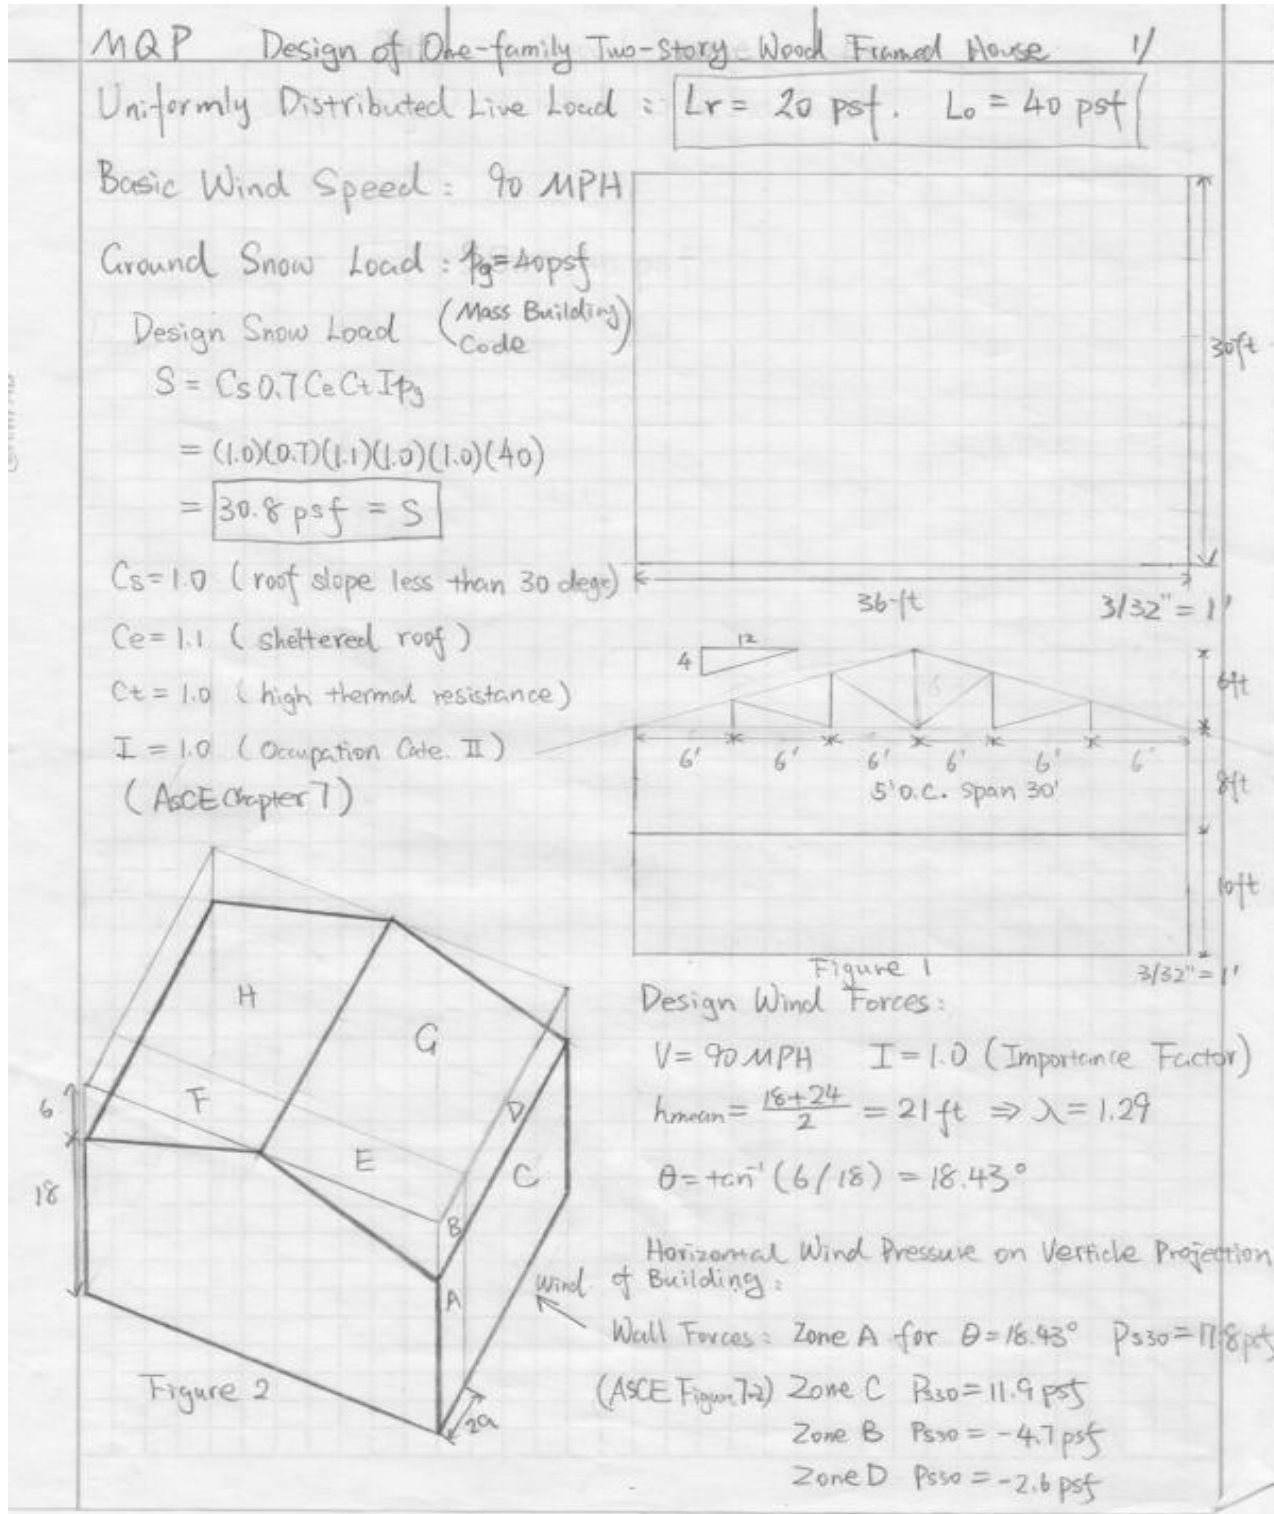 MQP Design of One-family Two-Story Wood Framed House 1/
Uniformly Distributed Live Load : Lr = 20 psf. Lo = 40 psf
Basic Wind Speed : 90 MPH
Ground Snow Load : pg=40psf
Design Snow Load (Mass Building Code)
S = Cs 0.7 Ce Ct I pg
= (1.0)(0.7)(1.1)(1.0)(1.0)(40)
= 30.8 psf = S
Cs=1.0 (roof slope less than 30 degs)
Ce=1.1 (sheltered roof)
Ct=1.0 (high thermal resistance)
I=1.0 (Occupation Cate. II)
(ASCE Chapter 7)
30ft
36-ft
3/32" = 1'
12
4
6ft
6' 6' 6' 6' 6' 6'
5' O.C. Span 30'
8ft
10ft
Figure 1
3/32" = 1'
H
G
F
E
D
C
B
A
6
18
Wind
2a
Figure 2
Design Wind Forces:
V= 90 MPH I=1.0 (Importance Factor)
hmean= 18+24/2 = 21ft ⇒ λ=1.29
θ=tan⁻¹(6/18) = 18.43°
Horizontal Wind Pressure on Verticle Projection
of Building:
Wall Forces: Zone A for θ=18.43° Ps30=17.8psf
(ASCE Figure 7-2) Zone C Ps30=11.9 psf
Zone B Ps30 = -4.7 psf
Zone D Ps30 = -2.6 psf